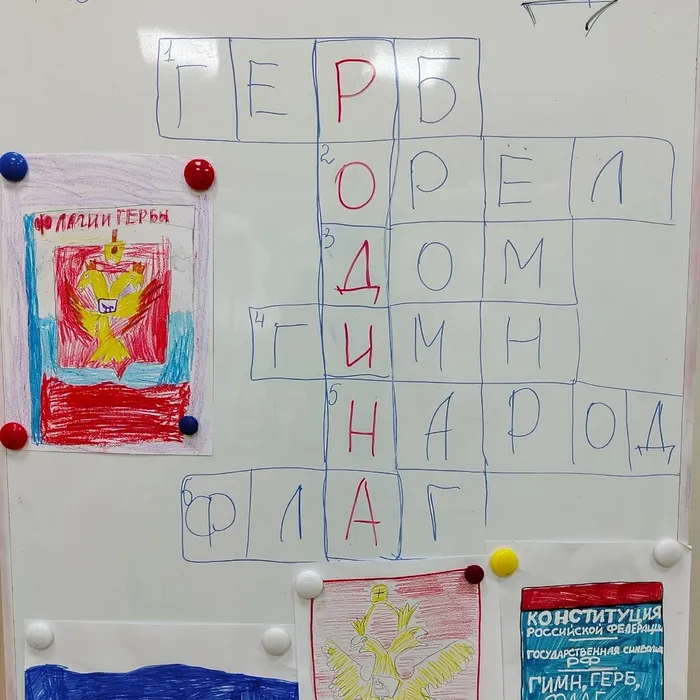 1 ГЕРБ
2 ОРЁЛ
3 ДОМ
4 ГИМН
5 НАРОД
6 ФЛАГ
ФЛАГИ И ГЕРБЫ
КОНСТИТУЦИЯ
РОССИЙСКОЙ ФЕДЕРАЦИИ
ГОСУДАРСТВЕННАЯ
РФ
ГИМН, ГЕРБ,